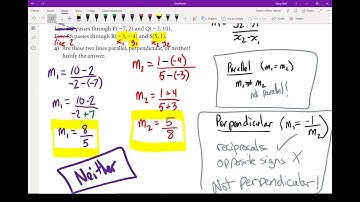 passes through P(-7, 2) and Q(-2, 10).
passes through R(-3, -4) and S(5, 1).
x₁ y₁ x₂ y₂
a) Are these two lines parallel, perpendicular, or neither?
Justify the answer.
m₁ = 10 - 2
-2 - (-7)
m₁ = 10 - 2
-2 + 7
m₁ = 8
5
m₂ = 1 - (-4)
5 - (-3)
m₂ = 1 + 4
5 + 3
m₂ = 5
8
Neither
x₂ - x₁
Parallel (m₁ = m₂)
m₁ ≠ m₂
not parallel!
Perpendicular (m₁ = -1
m₂)
reciprocals ✓
opposite signs X
Not perpendicular!